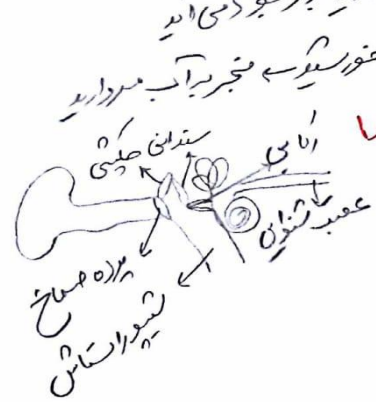 بوجود می آید
منجر به آب مروارید
سندانی چکشی
رکابی
عصب شنوایی
پرده صماخ
شیپور استاش